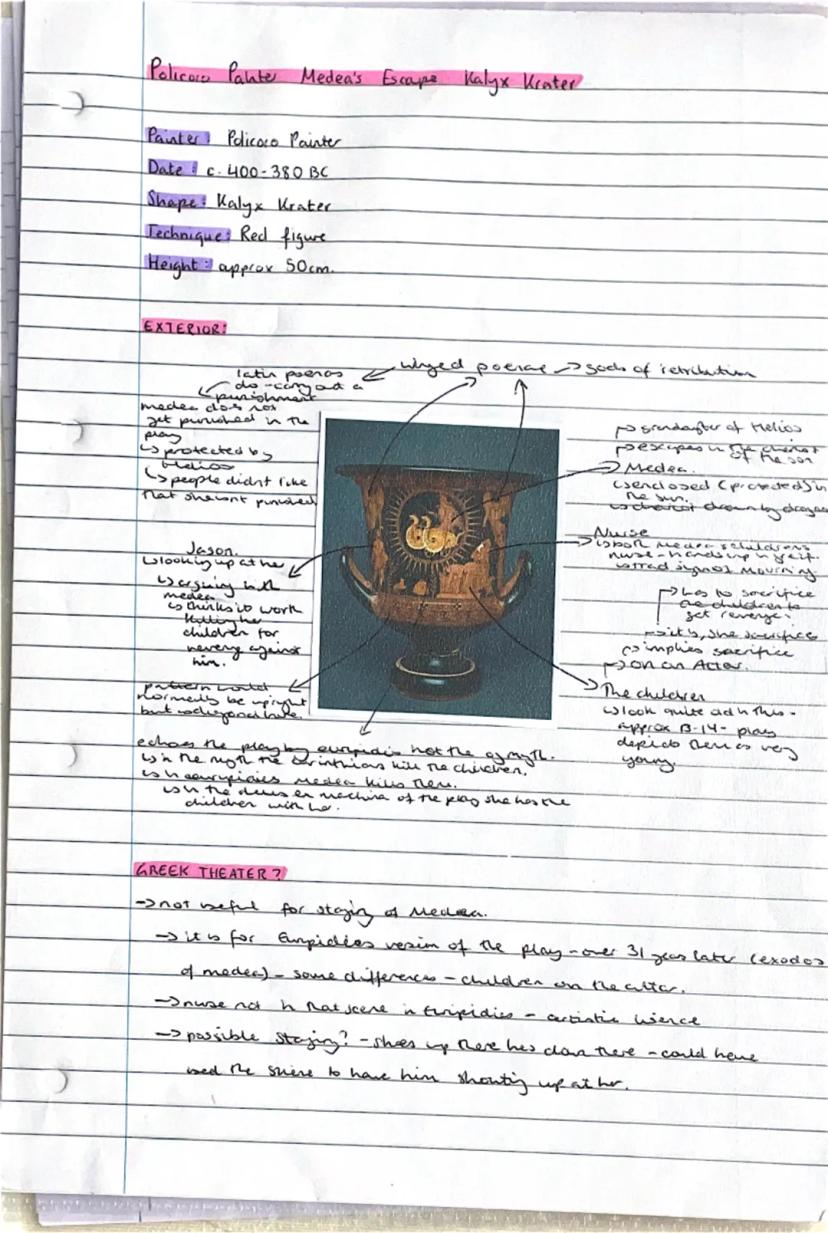 Policoro Painter Medea's Escape Kalyx Krater
Painter: Policoro Painter
Date: c. 400-380 BC
Shape: Kalyx Krater
Technique: Red figure
Height: approx 50cm.
EXTERIOR:
winged poenae → gods of retribution
latin poenas
do - carry out a
punishment
medea does not
get punished in the
play
↳ protected by
Helios
↳ people didnt like
that she isnt punished
Jason.
↳ looking up at her
↳ arguing with
medea
↳ thinks it worth
killing her
children for
revenge against
him.
pattern would
normally be upright
but is diagonal here.
→ grandaughter of Helios
→ escapes in the chariot
of the sun
Medea.
↳ enclosed (protected) in
the sun.
↳ chariot drawn by dragons
Nurse
↳ both Medea & childrens
nurse - hands up in grief.
↳ trad sign of mourning
→ has to sacrifice
the children to
get revenge.
→ it is, she sacrifices
↱ implies sacrifice
→ on an Altar.
The children
↳ look quite old in this -
approx 13-14 - play
depicts them as very
young
echoes the play by euripidis not the myth.
↳ in the myth the corinthians kill the children.
↳ in euripidies medea kills them.
↳ in the deus ex machina of the play she has the
children with her.
GREEK THEATER?
→ not useful for staging of Medea.
→ it is for Euripidies version of the play - over 31 years later (exodos
of medea) - some differences - children on the altar.
→ nurse not in that scene in Euripidies - artistic licence
→ possible staging? - shes up there hes down there - could have
used the skene to have him shouting up at her.